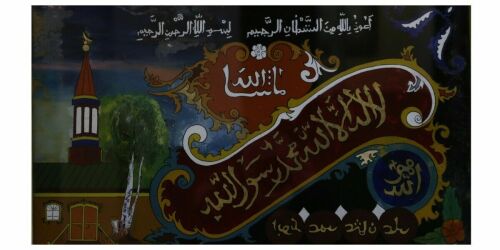 اعوذ بالله من الشيطان الرجيم بسم الله الرحمن الرحيم
ما شاء الله
لا اله الا الله محمد رسول الله
الله